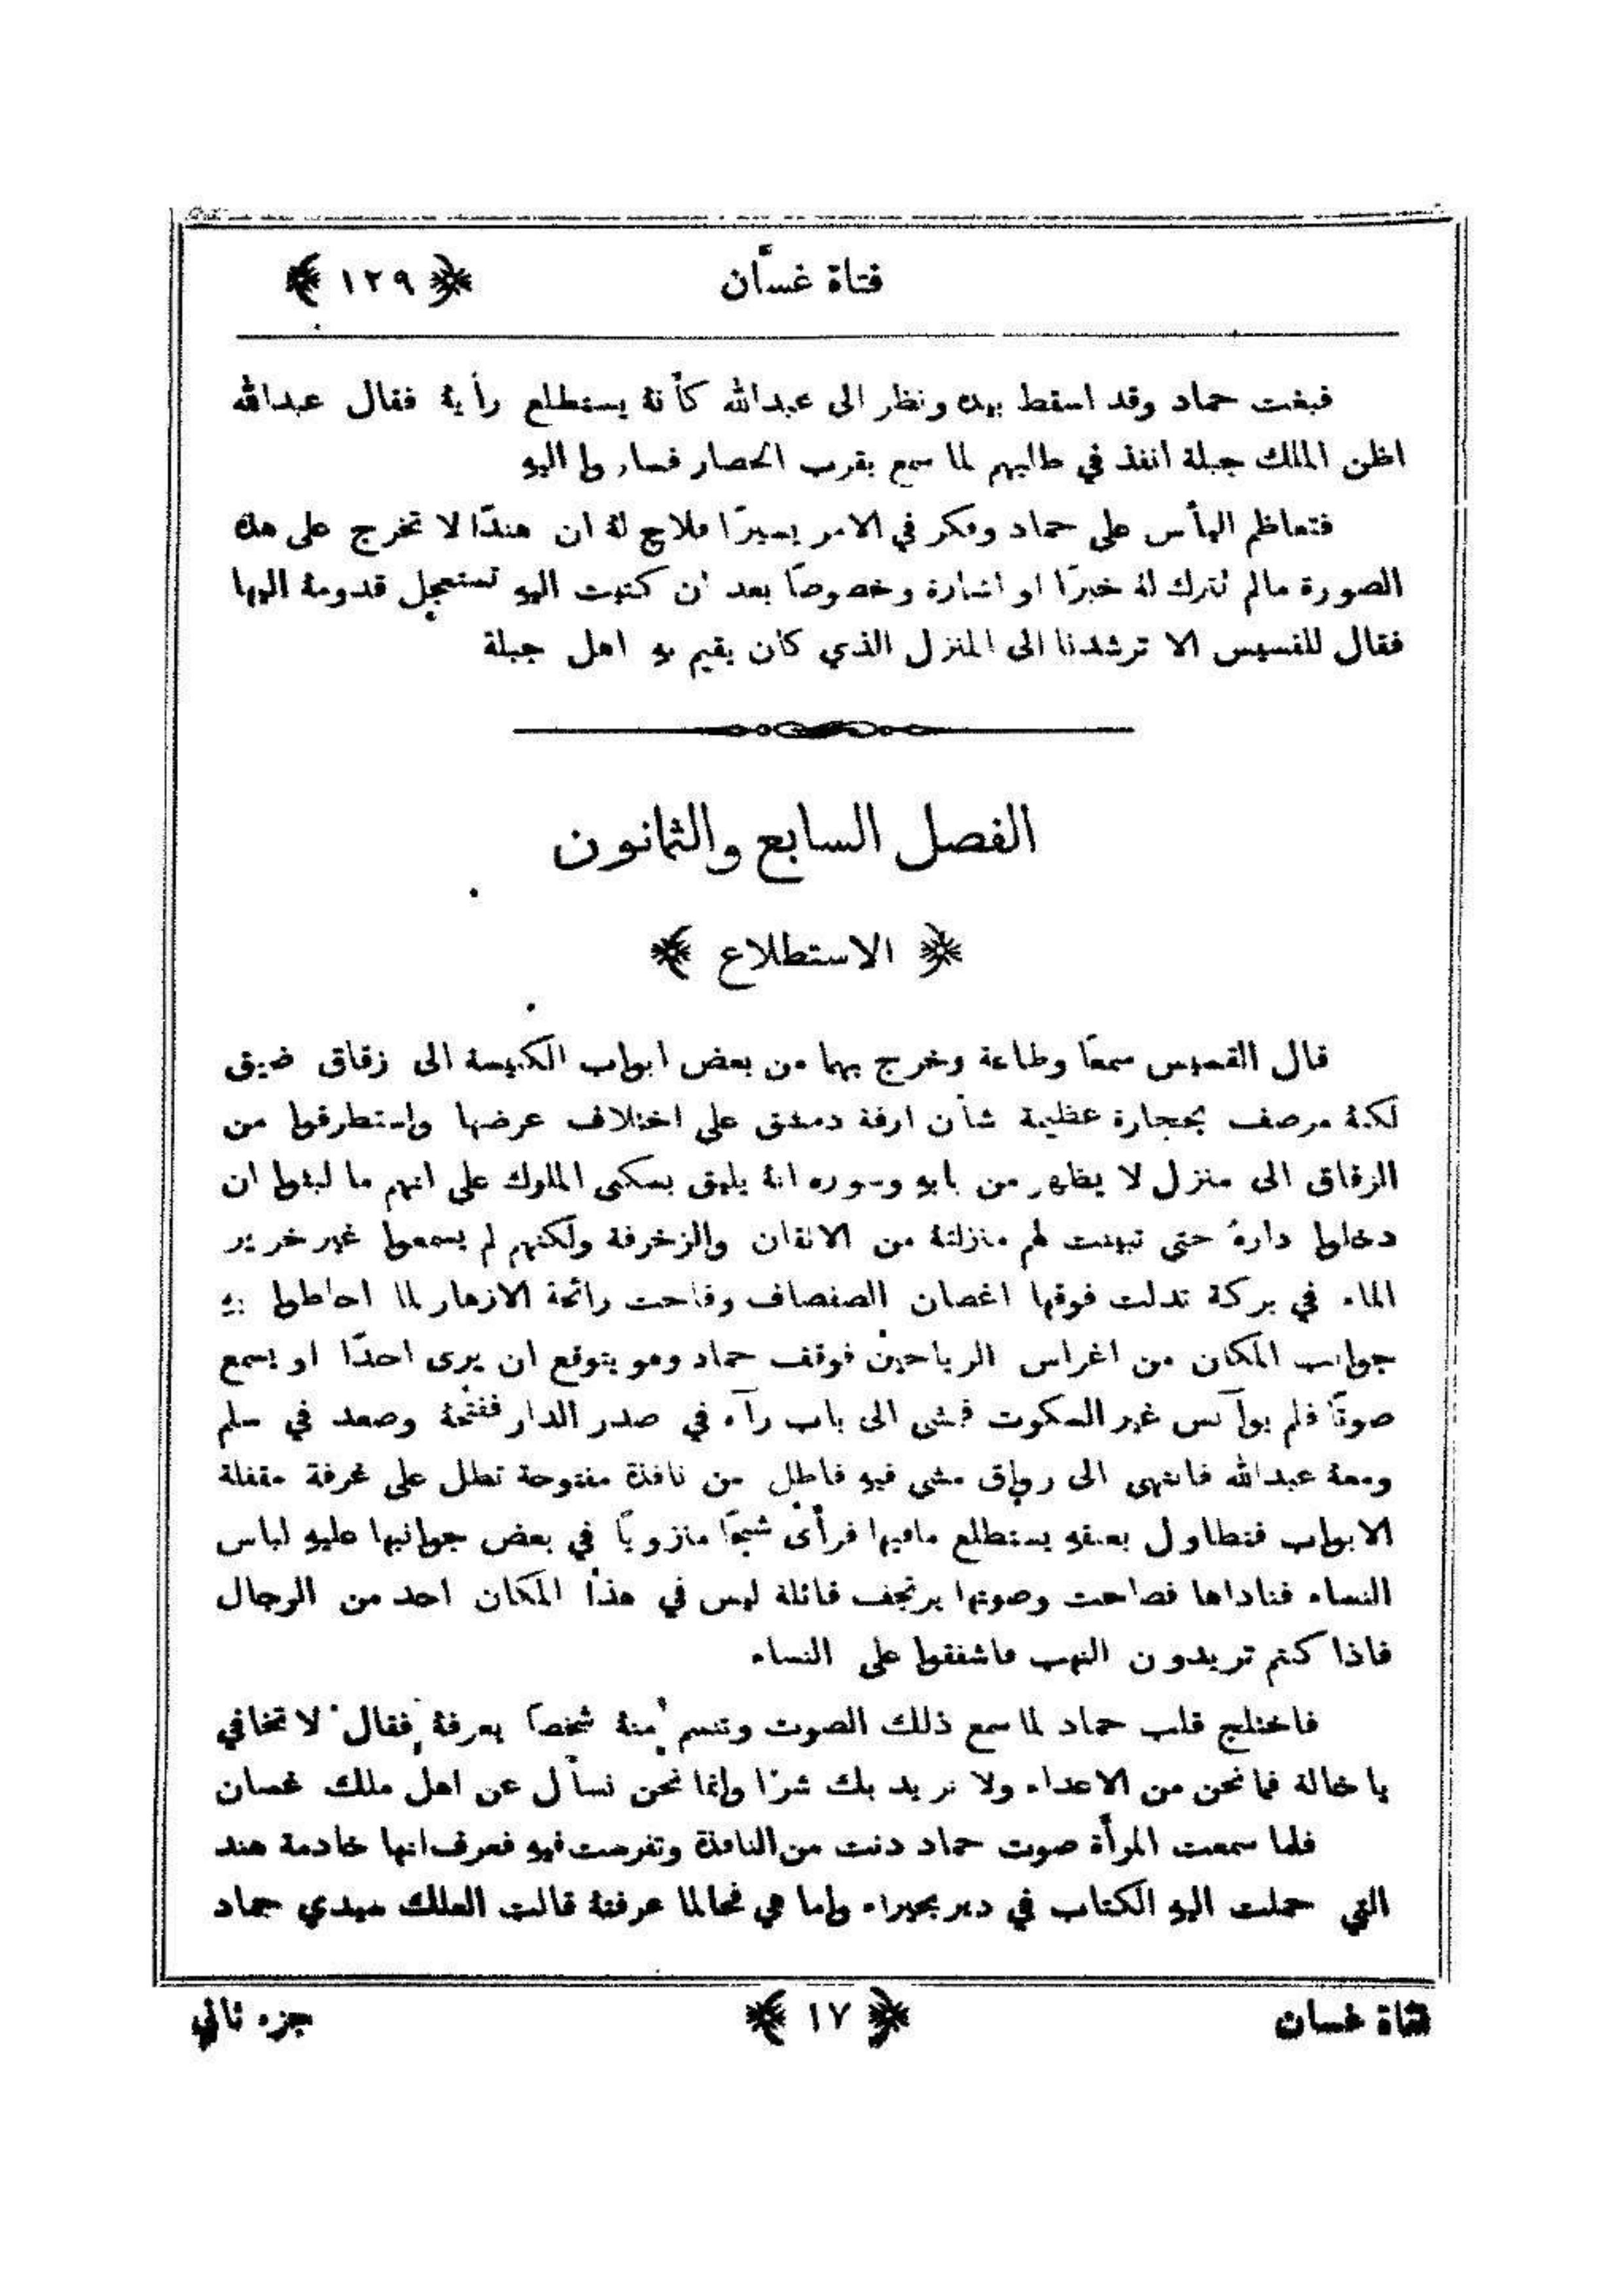 فتاة غسّان ﴿ ١٢٩ ﴾
فبغت حماد وقد اسقط بيده ونظر الى عبدالله كأنهُ يستطلع رأيهُ فقال عبدالله
اظن الملك جبلة انفذ في طلبهم لما سمع بقرب الحصار فساروا اليهِ
فتعاظم اليأس على حماد وفكر في الامر يسيرًا فلاح لهُ ان هندًا لا تخرج على هذه
الصورة مالم تترك لهُ خبرًا او اشارة وخصوصًا بعد ان كتبت اليهِ تستعجل قدومهُ اليها
فقال للقسيس الا ترشدنا الى المنزل الذي كان يقيم بهِ اهل جبلة
الفصل السابع والثمانون
﴿ الاستطلاع ﴾
قال القسيس سمعًا وطاعة وخرج بهما من بعض ابواب الكنيسة الى زقاق ضيق
لكنهُ مرصف بحجارة عظيمة شأن ازقة دمشق على اختلاف عرضها واستطرقوا من
الزقاق الى منزل لا يظهر من بابهِ وسوره انهُ يليق بسكنى الملوك على انهم ما لبثوا ان
دخلوا دارهُ حتى تبينت لهم منزلتهُ من الاتقان والزخرفة ولكنهم لم يسمعوا غير خرير
الماء في بركة تدلت فوقها اغصان الصفصاف وفاحت رائحة الازهار لما احاطوا بهِ
جوانب المكان من اغراس الرياحين فوقف حماد وهو يتوقع ان يرى احدًا او يسمع
صوتًا فلم يوآنس غير السكوت فمشى الى باب رآه في صدر الدار ففتحهُ وصعد في سلم
ومعهُ عبدالله فانتهى الى رواق مشى فيهِ فاطل من نافذة مفتوحة تطل على غرفة مقفلة
الابواب فتطاول بعنقهِ يستطلع مافيها فرأى شبحًا منزويًا في بعض جوانبها عليهِ لباس
النساء فناداها فصاحت وصوتها يرتجف قائلة ليس في هذا المكان احد من الرجال
فاذا كنتم تريدون النهب فاشفقوا على النساء
فاختلج قلب حماد لما سمع ذلك الصوت وتنسم منهُ شخصًا يعرفهُ فقال لا تخافي
يا خالة فما نحن من الاعداء ولا نريد بك شرًا وانما نحن نسأل عن اهل ملك غسان
فلما سمعت المرأة صوت حماد دنت من النافذة وتفرست فيهِ فعرف انها خادمة هند
التي حملت اليهِ الكتاب في دير بحيراء واما هي فحالما عرفتهُ قالت العلك سيدي حماد
فتاة غسان ﴿ ١٧ ﴾ جزء ثاني